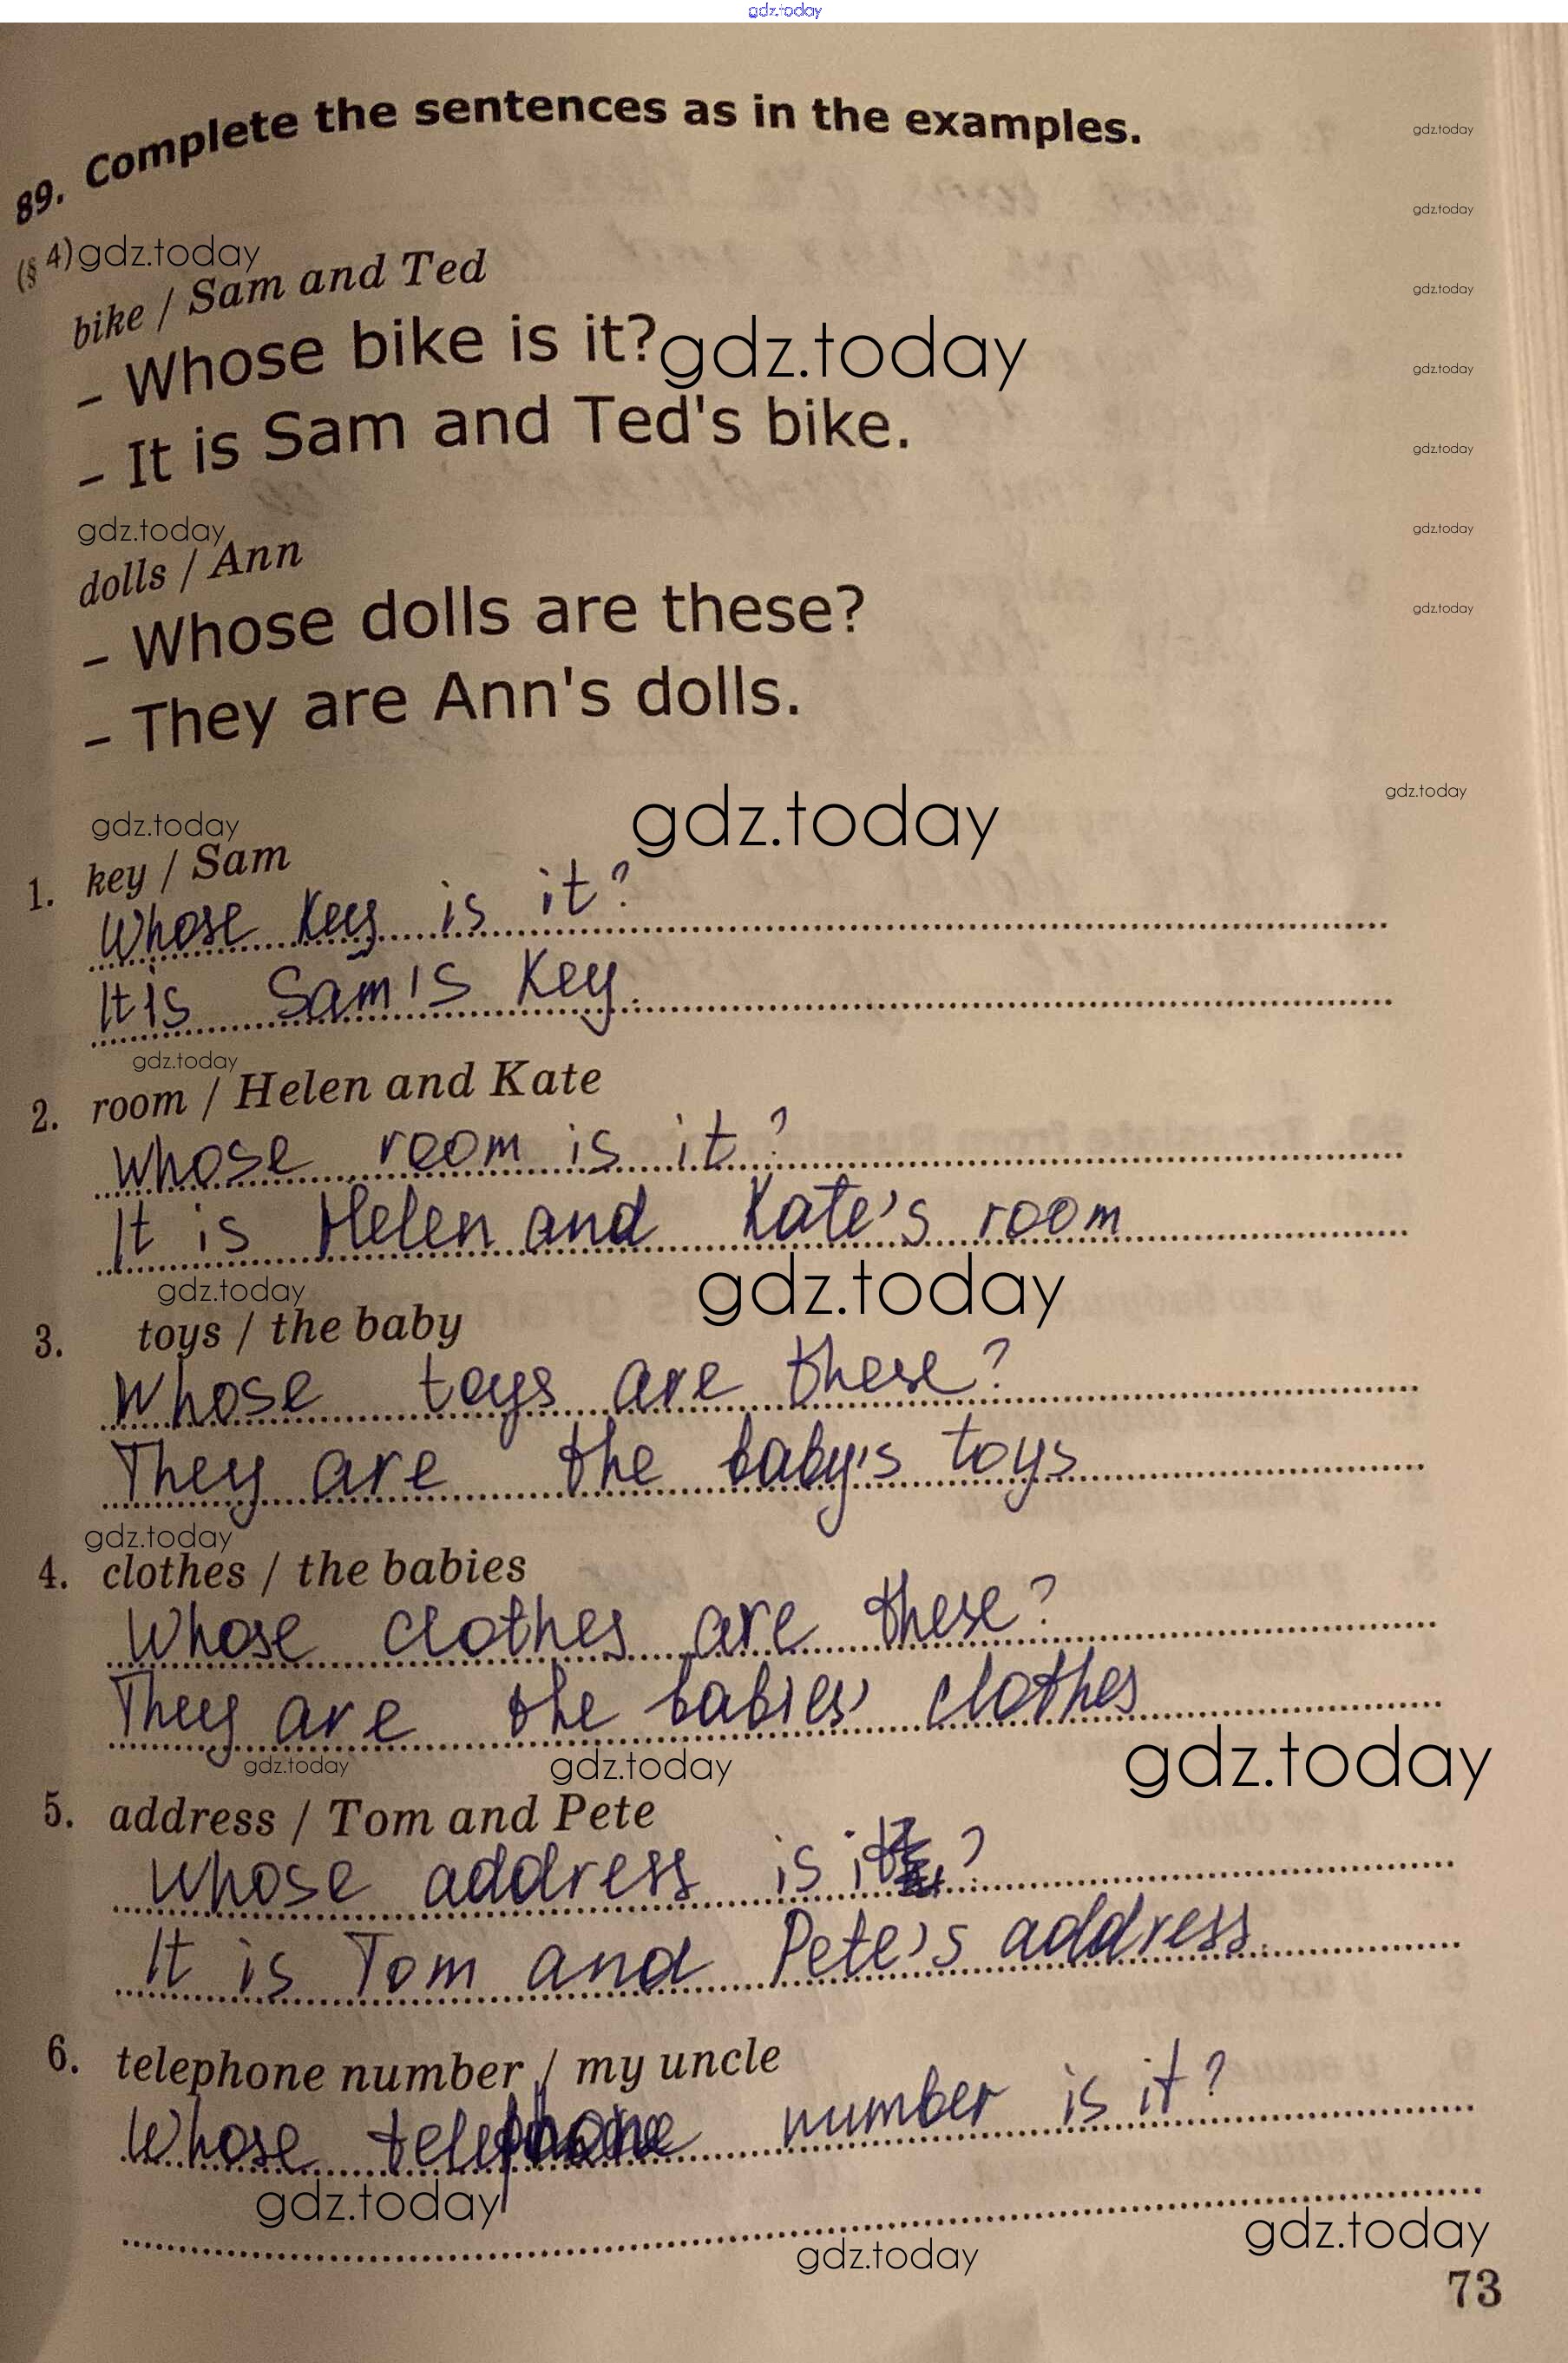 gdz.today
89. Complete the sentences as in the examples.
gdz.today
gdz.today
(§ 4) gdz.today
bike / Sam and Ted
gdz.today
– Whose bike is it? gdz.today
gdz.today
– It is Sam and Ted's bike.
gdz.today
gdz.today
gdz.today
dolls / Ann
– Whose dolls are these?
gdz.today
– They are Ann's dolls.
gdz.today
gdz.today
gdz.today
1. key / Sam
Whose key is it?
It is Sam's key.
gdz.today
2. room / Helen and Kate
Whose room is it?
It is Helen and Kate's room
gdz.today
gdz.today
3. toys / the baby
Whose toys are these?
They are the baby's toys
gdz.today
4. clothes / the babies
Whose clothes are these?
They are the babies' clothes
gdz.today
gdz.today
gdz.today
5. address / Tom and Pete
Whose address is it?
It is Tom and Pete's address.
6. telephone number / my uncle
Whose telephone number is it?
gdz.today
gdz.today
gdz.today
73